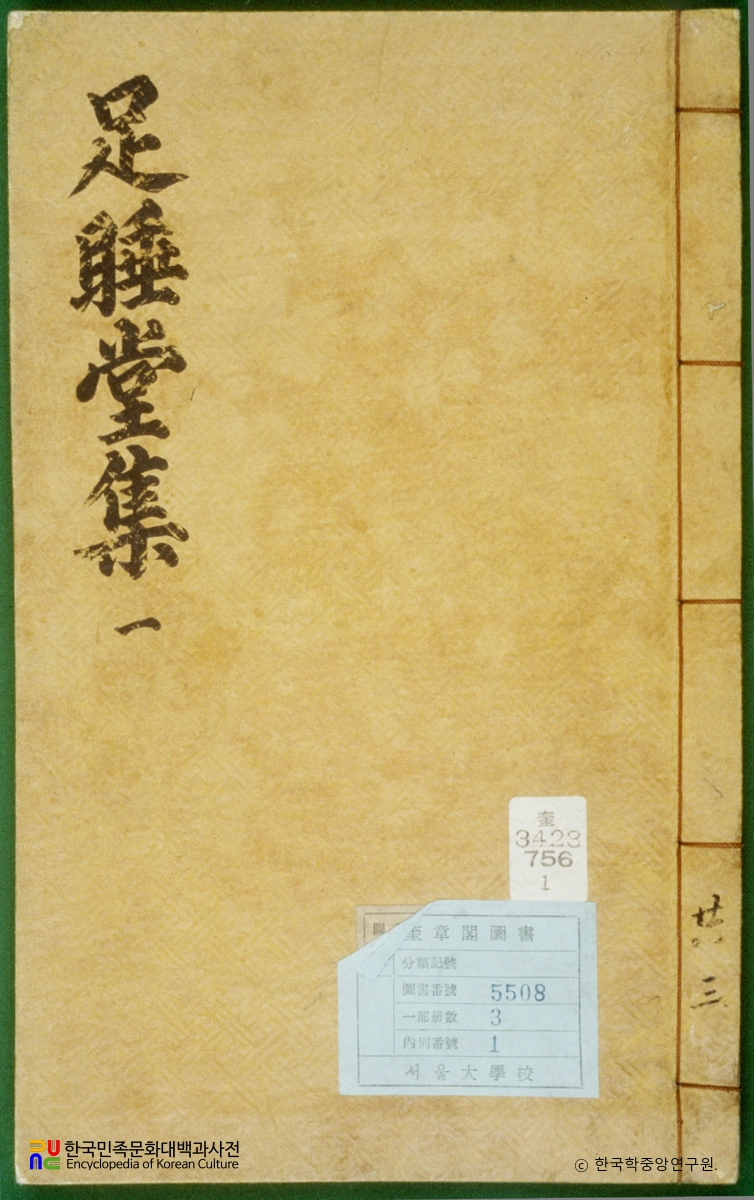 足睡堂集
一
奎
3423
756
1
圖
奎章閣圖書
分類記號
圖書番號 5508
一部册數 3
內別番號 1
서울大學校
共
三
한국민족문화대백과사전
Encyclopedia of Korean Culture
© 한국학중앙연구원.